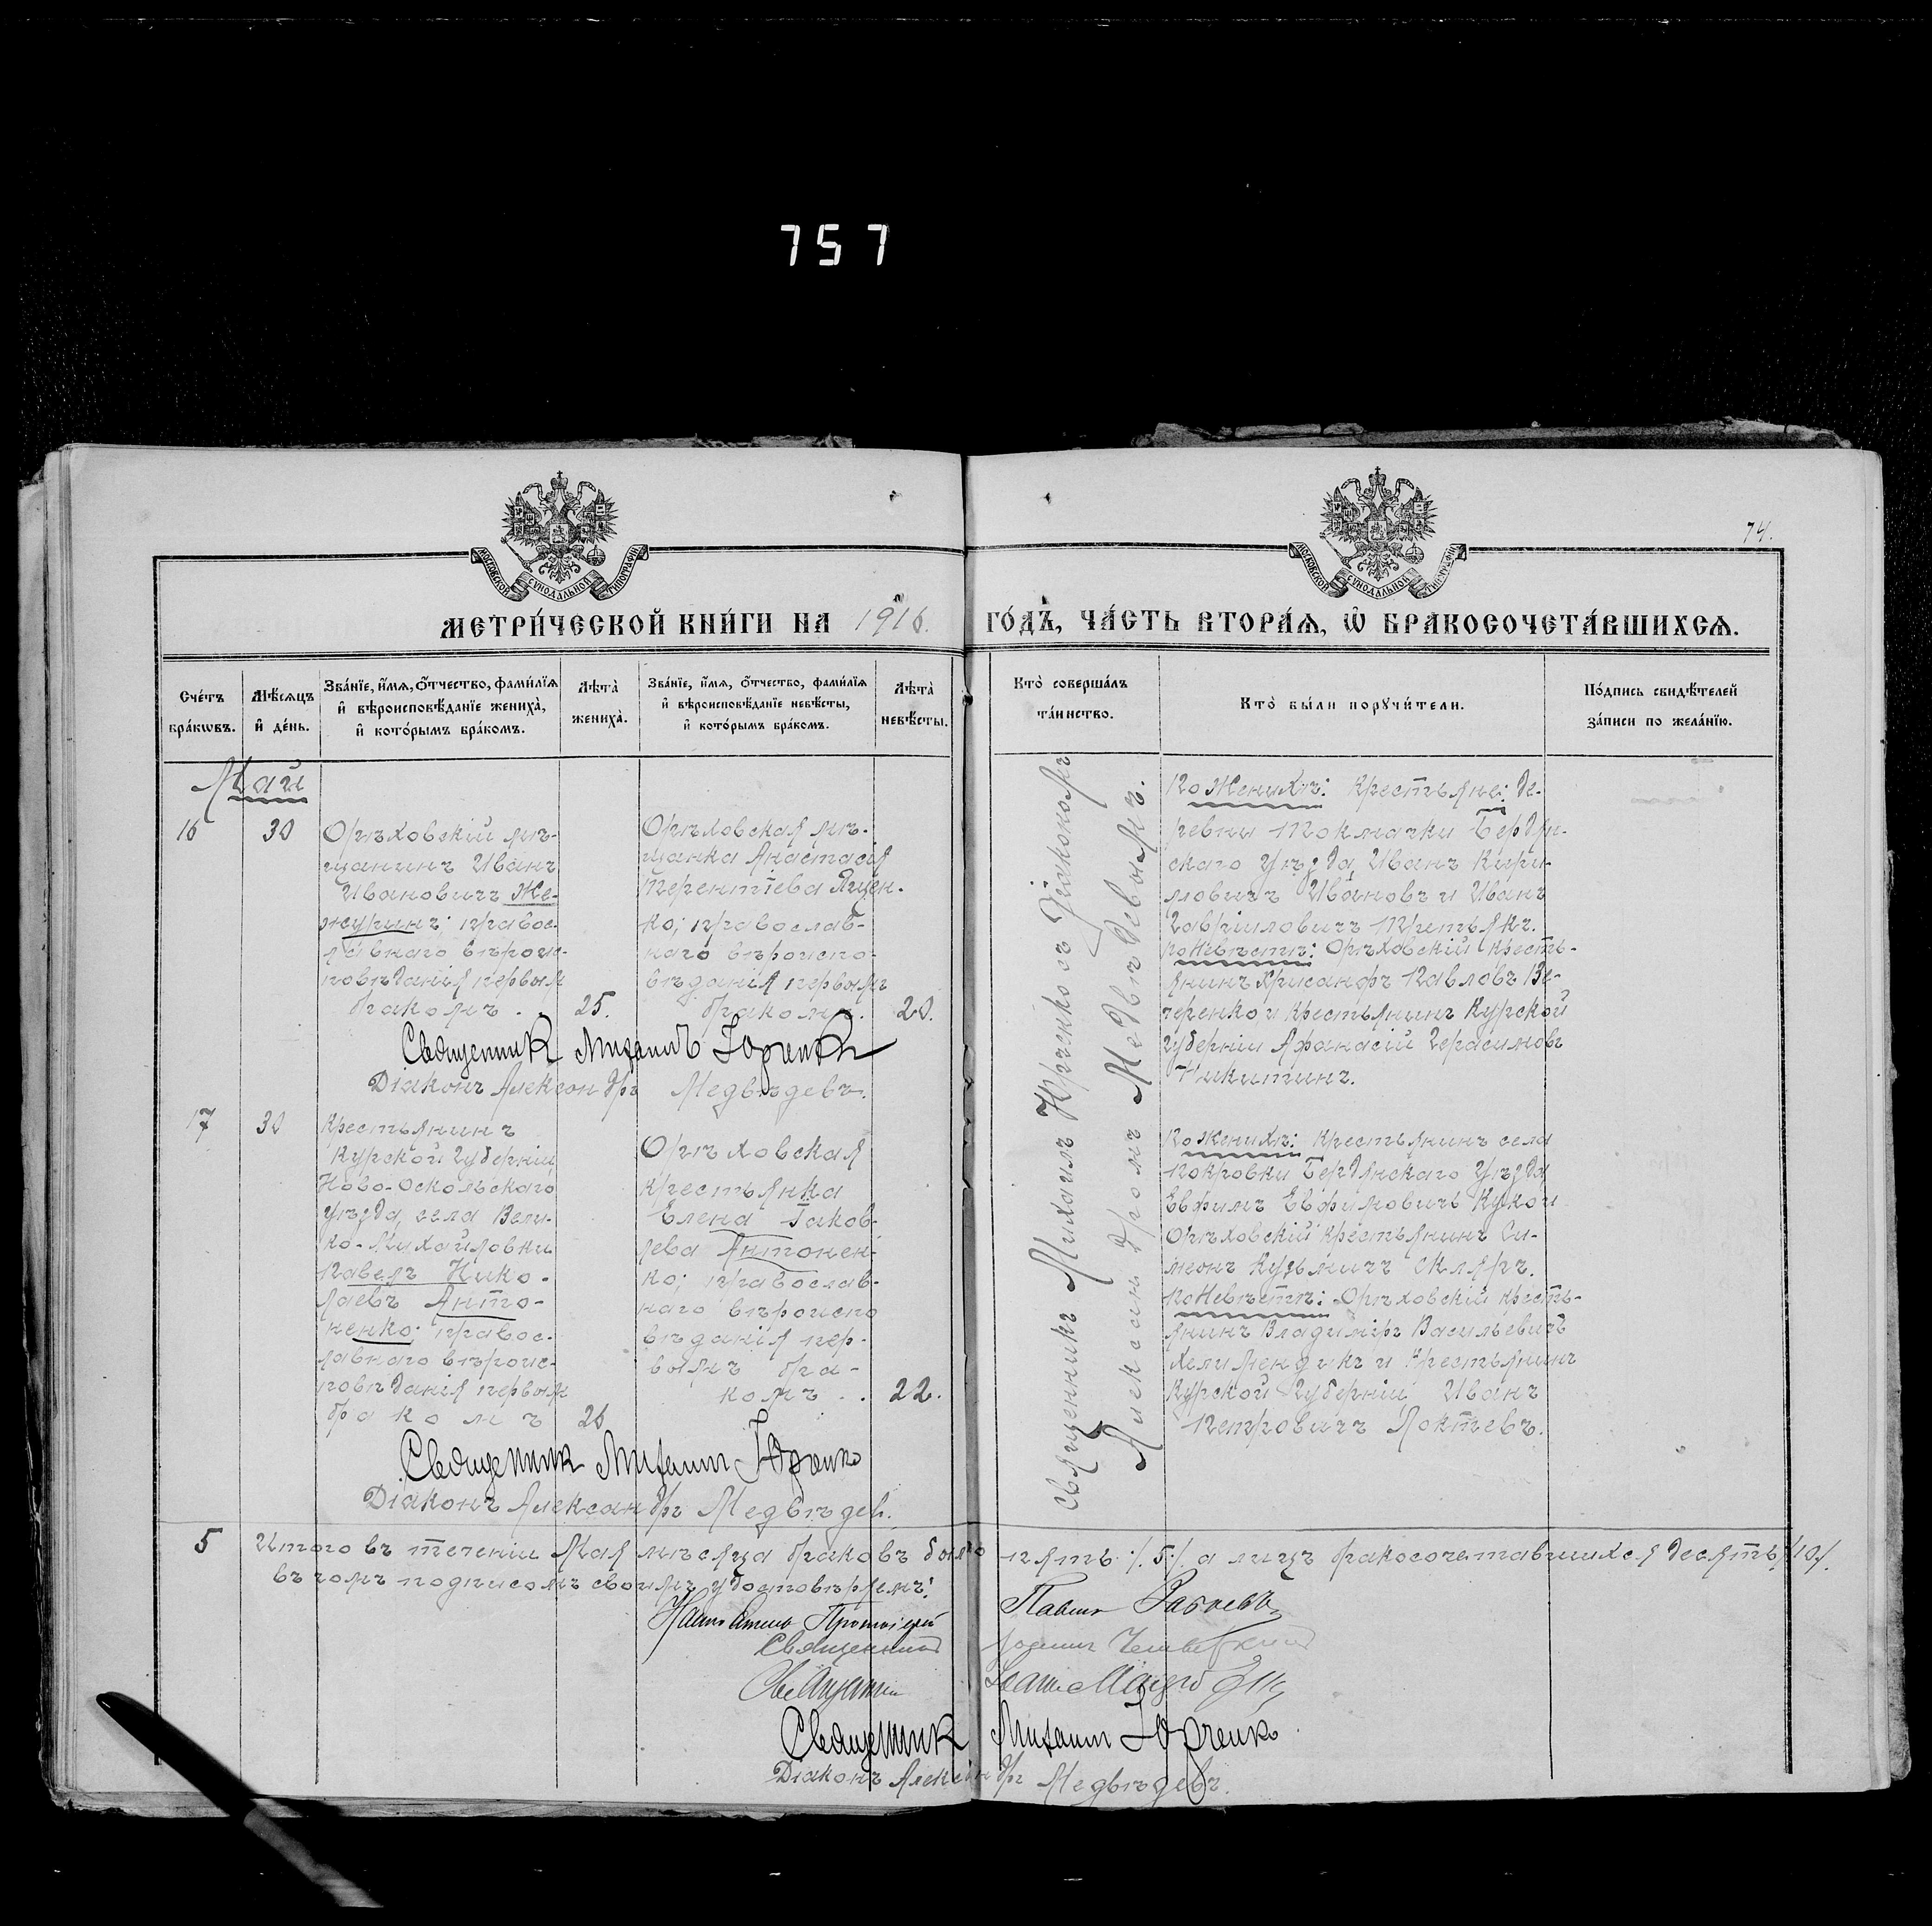 757
74.
МОСКОВСКОЙ СѴНОДАЛЬНОЙ ТИПОГРАФІИ
МОСКОВСКОЙ СѴНОДАЛЬНОЙ ТИПОГРАФІИ
МЕТРИ́ЧЕСКОЙ КНИ́ГИ НА 1916. ГО́ДЪ, ЧА́СТЬ ВТОРА́Ѧ, Ѡ҆ БРАКОСОЧЕТА́ВШИХСѦ.
Сче́тъ
бра́кѡвъ.
Мѣ́сѧцъ
и҆ де́нь.
Зва́нїе, и҆́мѧ, ѻ҆́тчество, фами́лїѧ
и҆ вѣроисповѣ́данїе жениха̀,
и҆ кото́рымъ бра́комъ.
Лѣ́та̀
жениха̀.
Зва́нїе, и҆́мѧ, ѻ҆́тчество, фами́лїѧ
и҆ вѣроисповѣ́данїе невѣ́сты,
и҆ кото́рымъ бра́комъ.
Лѣ́та̀
невѣ́сты.
Кто̀ соверша́лъ
та́инство.
Кто̀ бы́ли порꙋчи́тели.
По́дпись свидѣ́телей
за́писи по жела́нїю.
Май
16
30
Орѣховскій мѣ-
щанинъ Иванъ
Ивановичъ Же-
журинъ; правос-
лавнаго вѣроис-
повѣданія первым
бракомъ.
25.
Орѣховская мѣ-
щанка Анастасія
Терентіева Яцен-
ко; православ-
наго вѣроиспо-
вѣданія первымъ
бракомъ.
20.
Священникъ Михаилъ Юрченко съ Діакономъ
Александромъ Медвѣдевымъ.
По Женихѣ: крестьяне: де-
ревни Токмачки Бердян-
скаго уѣзда, Иванъ Кири-
ловичъ Ивановъ и Иванъ
Гавріиловичъ Третьякъ.
по Невѣстѣ: Орѣховскій кресть-
янинъ Хрисанфъ Павловъ Ве-
черенко и крестьянинъ Курской
губерніи Афанасій Герасимовъ
Никитинъ.
Священникъ Михаилъ Юрченко
Діаконъ Александръ Медвѣдевъ.
17
30
Крестьянинъ
Курской губерніи
Ново-Оскольскаго
уѣзда, села Вели-
ко-Михайловки
Павелъ Нико-
лаевъ Анто-
ненко; правос-
лавнаго вѣроис-
повѣданія первым
бракомъ
26
Орѣховская
крестьянка
Елена Іаков-
лева Антонен-
ко; православ-
наго вѣроиспо
вѣданія пер-
вымъ бра-
комъ . .
22.
По Женихѣ: крестьянинъ села
Покровки Бердянскаго уѣзда
Евфимъ Евфимовичъ Кукои
Орѣховскій крестьянинъ Си-
меонъ Кузьмичъ Скляръ.
по Невѣстѣ: Орѣховскій кресть-
янинъ Владиміръ Васильевичъ
Хелимендикъ и крестьянинъ
Курской губерніи Иванъ
Петровичъ Локтевъ.
Священникъ Михаилъ Юрченко
Діаконъ Александръ Медвѣдев.
5
Итого въ теченіи Мая мѣсяца браковъ было пять ./. 5 ./. а лицъ бракосочетавшихся десять /10/.
въ чемъ подписомъ своимъ удостовѣряемъ:
Протоіерей Павелъ
Священникъ
Священникъ
Священникъ Михаил Юрченко
Діаконъ Александръ Медвѣдевъ.